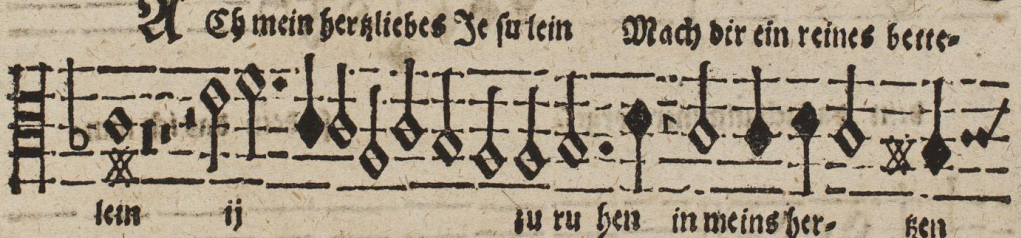 ACh mein hertzliebes Je su lein Mach dir ein reines bette-
lein ij zu ru hen in meins her- tzen